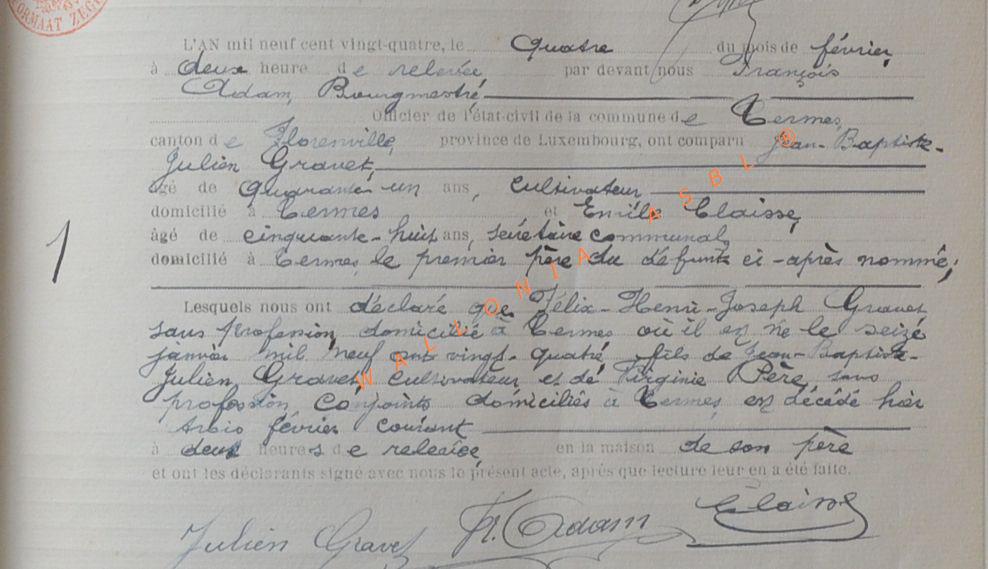 FORMAAT ZEGEL
L'AN mil neuf cent vingt-quatre, le quatre du mois de février,
à deux heure de relevée, par devant nous François
Adam, Bourgmestre
Officier de l'état-civil de la commune de Termes,
canton de Florenville, province de Luxembourg, ont comparu Jean-Baptiste-
Julien Gravet,
âgé de quarante un ans, cultivateur
domicilié à Termes et Emile Claisse,
âgé de cinquante-huit ans, secrétaire communal,
domicilié à Termes, le premier père du défunt ci-après nommé;
1
Lesquels nous ont déclaré que Félix-Henri-Joseph Gravet,
sans profession, domicilié à Termes où il est né le seize
janvier mil neuf cent vingt-quatre, fils de Jean-Baptiste-
Julien Gravet, cultivateur et de Virginie Père, sans
profession, conjoints domiciliés à Termes, est décédé hier
trois février courant
à deux heures de relevée, en la maison de son père
et ont les déclarants signé avec nous le présent acte, après que lecture leur en a été faite.
Julien Gravet Fr. Adam Claisse
WALLONIA ASBL ®